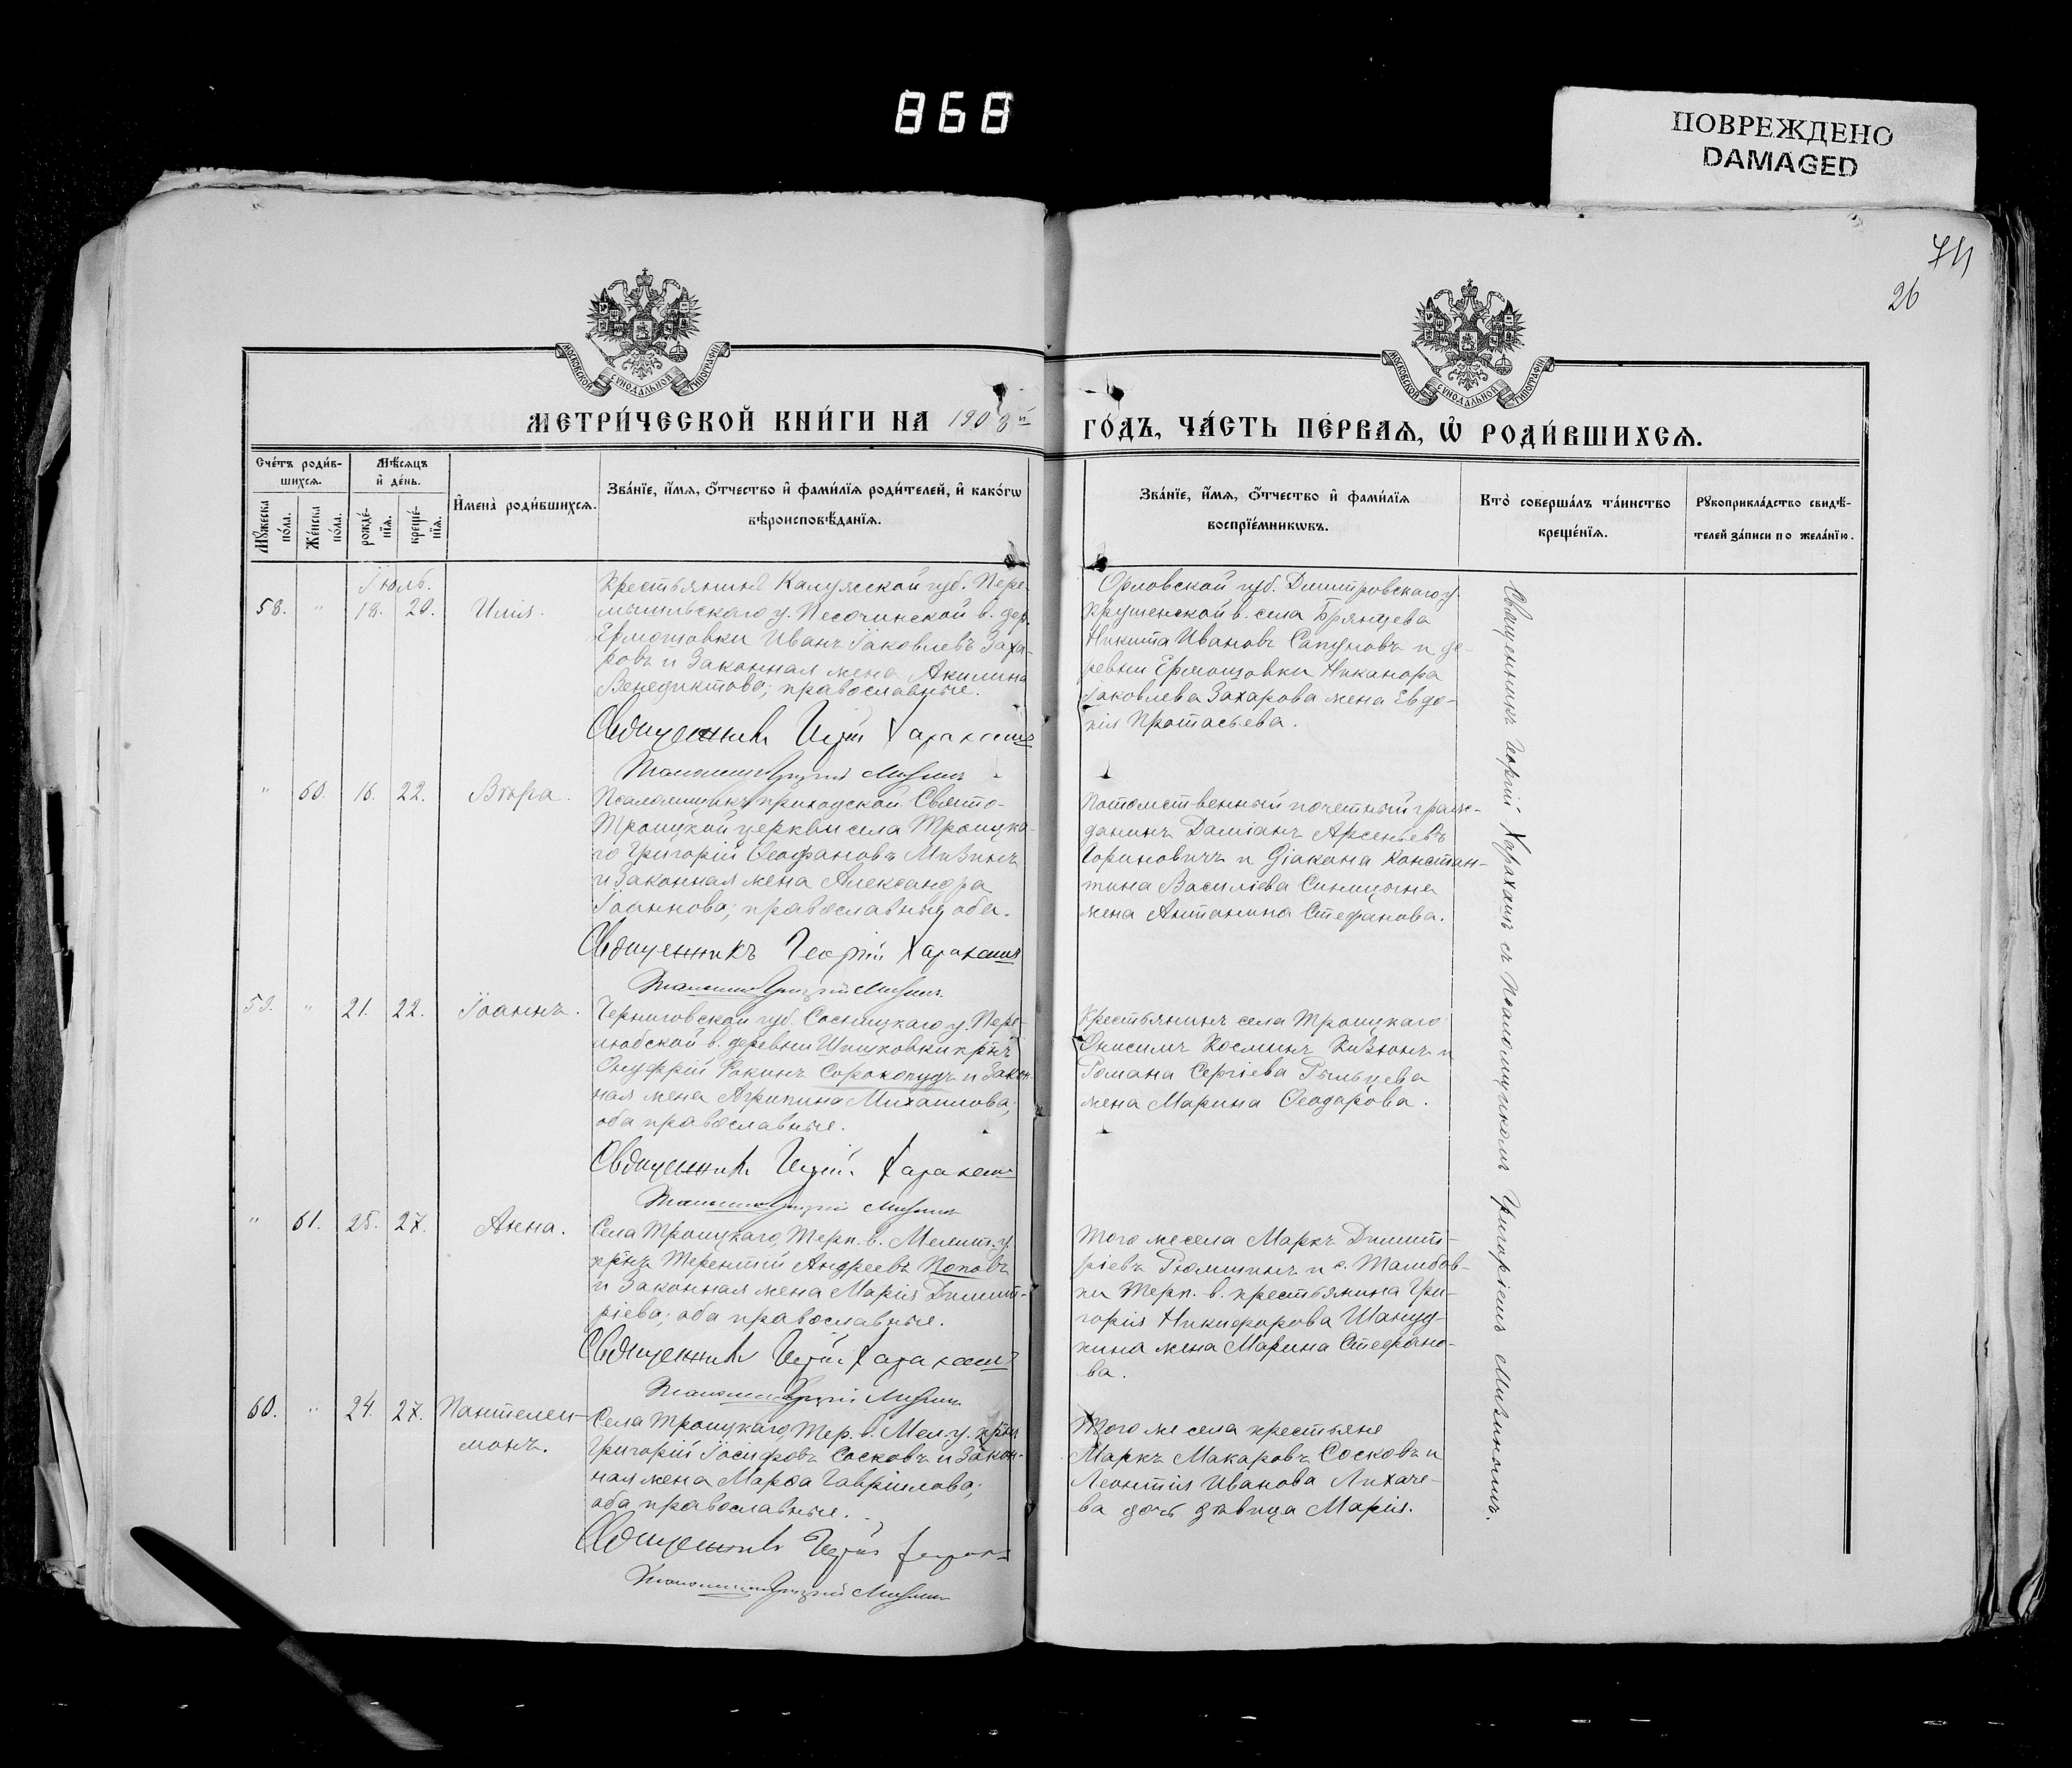 868
ПОВРЕЖДЕНО
DAMAGED
74
26
МОСКОВСКОЙ СѴНОДАЛЬНОЙ ТИПОГРАФІИ
МОСКОВСКОЙ СѴНОДАЛЬНОЙ ТИПОГРАФІИ
МЕТРИ́ЧЕСКОЙ КНИ́ГИ НА 1908й
ГО́ДЪ, ЧА́СТЬ ПЕ́РВАѦ, Ѡ҆ РОДИ́ВШИХСѦ.
Сче́тъ роди́в-
шихсѧ.
Мѣ́сѧцъ
и҆ де́нь.
Мꙋ́жеска
по́ла.
Же́нска
по́ла.
рожде́-
нїѧ.
креще́-
нїѧ.
И҆мена̀ роди́вшихсѧ.
Зва́нїе, и҆́мѧ, ѻ҆́тчество и҆ фами́лїѧ роди́телей, и҆ како́гѡ
вѣроисповѣ́данїѧ.
Зва́нїе, и҆́мѧ, ѻ҆́тчество и҆ фами́лїѧ
воспрїе́мникѡвъ.
Кто̀ соверша́лъ та́инство
креще́нїѧ.
Рꙋкоприкла́дство свидѣ́-
телей за́писи по жела́нїю.
Іюль.
58. " 18. 20. Илія.
Крестьянинъ Калужской губ. Пере-
мышльскаго у. Песочинской в. дер.
Ермошовки Иванъ Іаковлевъ Заха-
ровъ и законная жена Акилина
Венедиктова; православные.
Священникъ Георгій Харахашъ
Псаломщикъ Григорій Мизинъ
Орловской губ. Дмитровскаго у.
села Брянцева
Никита Ивановъ Сапуновъ и де-
ревни Ермошовки Никанора
Іаковлева Захарова жена Евдо-
кія Протасьева.
" 60. 16. 22. Вѣра.
Псаломщикъ приходской Свято-
Троицкой церкви села Троицка-
го Григорій Ѳеофановъ Мизинъ
и законная жена Александра
Іоаннова; православные оба.
Священникъ Георгій Харахашъ
Псаломщикъ Григорій Мизинъ
Потомственный почетный граж-
данинъ Даміанъ Арсеньевъ
Гориновичъ и діакона Констан-
тина Василіева Синицына
жена Антонина Стефанова.
59. " 21. 22. Іоаннъ.
Черниговской губ. Сосницкаго у. Пере-
любской в. деревни Шишковки кр̃нъ
Онуфрій Фокинъ Сорокопудъ и закон-
ная жена Агрипина Михаилова;
оба православные.
Священникъ Георгій Харахашъ
Псаломщикъ Григорій Мизинъ
Крестьянинъ села Троицкаго
Онисимъ Косминъ и
Романа Сергіева Рыльцева
жена Марина Ѳеодорова.
" 61. 25. 27. Анна.
Села Троицкаго, Терп. в. Мелит. у.
кр̃нъ Терентій Андреевъ Поповъ
и законная жена Марія Димит-
ріева; оба православные.
Священникъ Георгій Харахашъ
Псаломщикъ Григорій Мизинъ
Того же села Маркъ Димит-
ріевъ Рюмшинъ и с. Тамбов-
ки Терп. в. крестьянина Гри-
горія Никифорова Шануд-
кина жена Марина Стефано-
ва.
60. " 24. 27. Пантелеи-
монъ.
Села Троицкаго, Тер. в. Мел. у. кр̃нъ
Григорій Іосифовъ Сосковъ и закон-
ная жена Марѳа Гавріилова;
оба православные.
Священникъ Георгій
Псаломщикъ Григорій Мизинъ
Того же села крестьяне
Маркъ Макаровъ Сосковъ и
Леонтія Иванова Лихаче-
ва дочь дѣвица Марія.
Священникъ Георгій Харахашъ съ Псаломщикомъ Григоріемъ Мизиномъ.